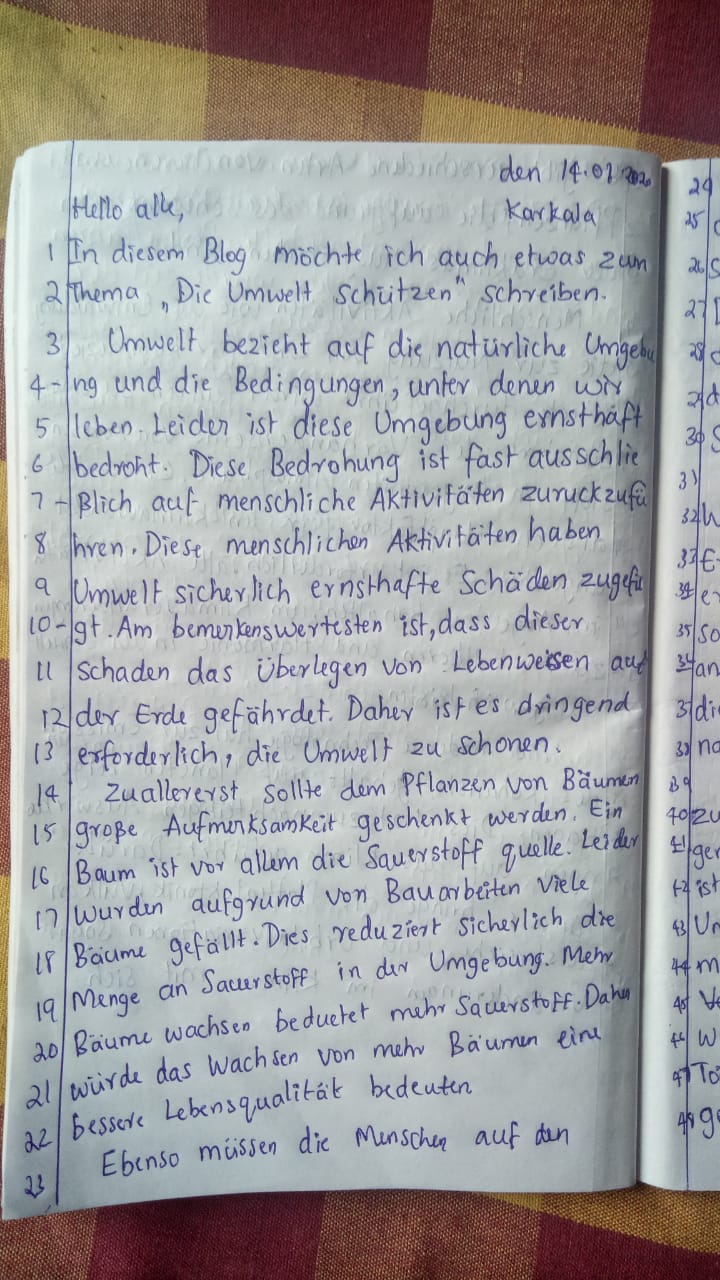 den 14.02 2020
Hello alle,
Karkala
1 In diesem Blog möchte ich auch etwas zum
2 Thema „Die Umwelt schützen" schreiben.
3 Umwelt bezieht auf die natürliche Umgebu
4 - ng und die Bedingungen, unter denen wir
5 leben. Leider ist diese Umgebung ernsthaft
6 bedroht. Diese Bedrohung ist fast ausschlie
7 - ßlich auf menschliche Aktivitäten zuruckzufü
8 hren. Diese menschlichen Aktivitäten haben
9 Umwelt sicherlich ernsthafte Schäden zugefü
10 - gt. Am bemerkenswertesten ist, dass dieser
11 schaden das überlegen von Lebenweisen auf
12 der Erde gefährdet. Daher ist es dringend
13 erforderlich, die Umwelt zu schonen.
14 Zuallererst sollte dem Pflanzen von Bäumen
15 große Aufmerksamkeit geschenkt werden. Ein
16 Baum ist vor allem die Sauerstoff quelle. Leider
17 wurden aufgrund von Bauarbeiten viele
18 Bäume gefällt. Dies reduziert sicherlich die
19 Menge an Sauerstoff in der Umgebung. Mehr
20 Bäume wachsen beduetet mehr Sauerstoff. Daher
21 würde das Wachsen von mehr Bäumen eine
22 bessere Lebensqualität bedeuten
23 Ebenso müssen die Menschen auf den
24
25
26
27
28
29
30
31
32
33
34
35 so
36 an
37 die
38 na
39
40 zu
41 ger
42 ist
43 Un
44 m
45 Ve
46 W
47 To
48 g